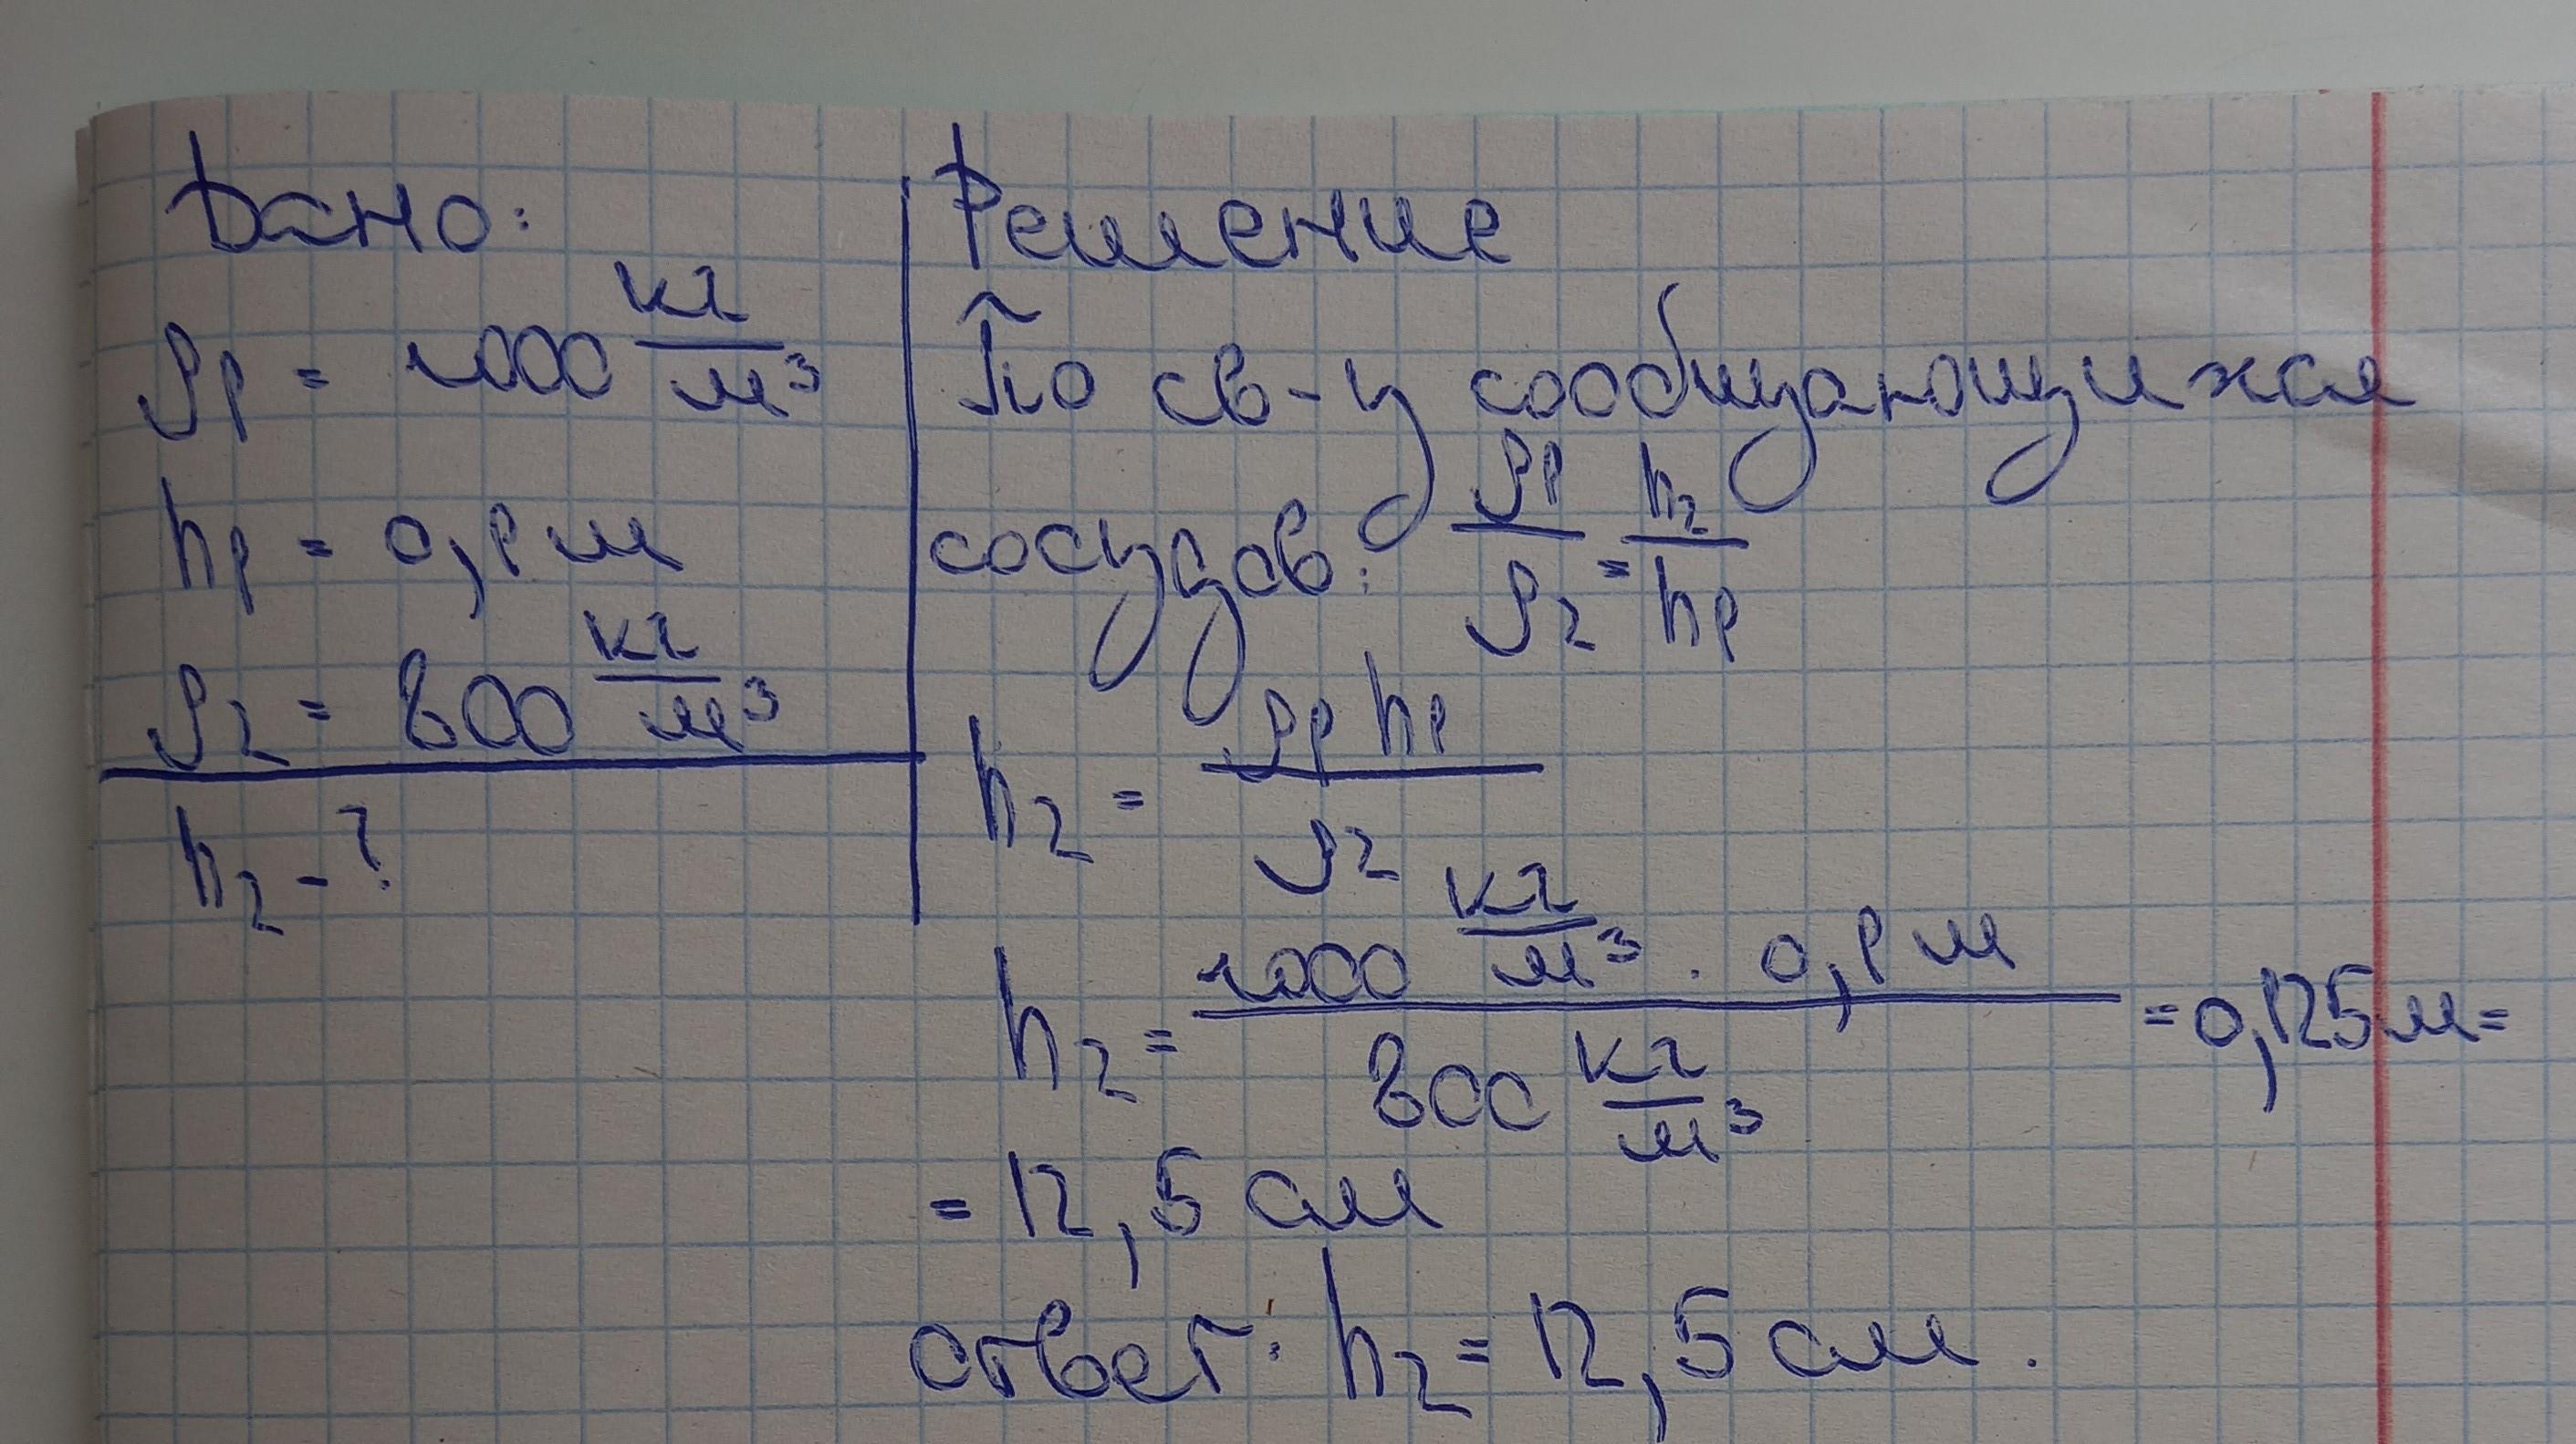 Дано:
ρ₁ = 1000 кг/м³
h₁ = 0,1 м
ρ₂ = 800 кг/м³
h₂ - ?
Решение
По св-у сообщающихся
сосудов: ρ₁/ρ₂ = h₂/h₁
h₂ = ρ₁ h₁/ρ₂
h₂ = 1000 кг/м³ · 0,1 м/800 кг/м³ = 0,125 м =
= 12,5 см
ответ: h₂ = 12,5 см.